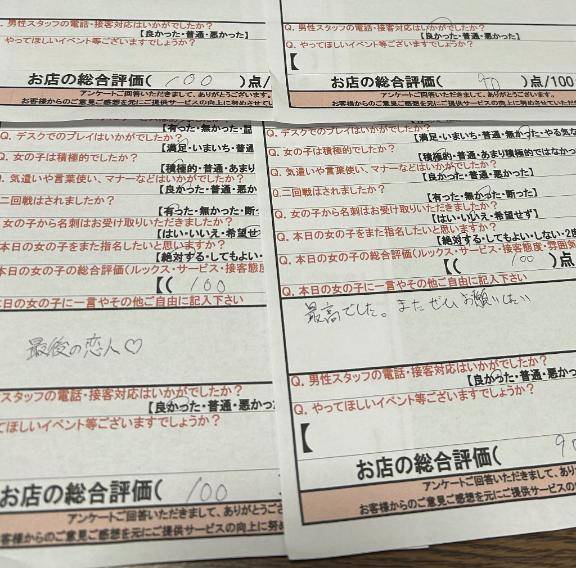 Q. 男性スタッフの電話・接客対応はいかがでしたか?
【良かった・普通・悪かった】
やってほしいイベント等ございますでしょうか?
お店の総合評価( 100 )点/
アンケートご回答いただきまして、ありがとうございます。
お客様からのご意見ご感想を元にご提供サービスの向上に努めさせてい
Q. 男性スタッフの電話・接客対応はいかがでしたか?
【良かった・普通・悪かった】
Q. やってほしいイベント等ございますでしょうか?
【
お店の総合評価( 90 )点/100
アンケートご回答いただきまして、ありがとうございます。
お客様からのご意見ご感想を元にご提供サービスの向上に努めさせていただ
Q. デスクでのプレイはいかがでしたか?
【満足・いまいち・普通
Q. 女の子は積極的でしたか?
【積極的・普通・あまり
Q. 気遣いや言葉使い、マナーなどはいかがでしたか?
【良かった・普通・悪か
二回戦はされましたか?
【有った・無かった・断っ
女の子から名刺はお受け取りいただきましたか?
【はい・いいえ・希望せ
本日の女の子をまた指名したいと思いますか?
【絶対する・してもよい・
本日の女の子の総合評価(ルックス・サービス・接客態度
【( 100
本日の女の子に一言やその他ご自由に記入下さい
最後の恋人♡
スタッフの電話・接客対応はいかがでしたか?
【良かった・普通・悪かっ
てほしいイベント等ございますでしょうか?
お店の総合評価( 100
アンケートご回答いただきまして、ありがとうござ
お客様からのご意見ご感想を元にご提供サービスの向上に努め
【有った・無かった・断った】
Q. デスクでのプレイはいかがでしたか?
【満足・いまいち・普通・無かった・やる気な
Q. 女の子は積極的でしたか?
【積極的・普通・あまり積極的ではなかっ
Q. 気遣いや言葉使い、マナーなどはいかがでしたか?
【良かった・普通・悪かった】
Q. 二回戦はされましたか?
【有った・無かった・断った】
Q. 女の子から名刺はお受け取りいただきましたか?
【はい・いいえ・希望せず】
Q. 本日の女の子をまた指名したいと思いますか?
【絶対する・してもよい・しない・2度
Q. 本日の女の子の総合評価(ルックス・サービス・接客態度・雰囲気
【( 100 )点
Q. 本日の女の子に一言やその他ご自由に記入下さい
最高でした。またぜひお願いしたい
Q. 男性スタッフの電話・接客対応はいかがでしたか?
【良かった・普通・悪かっ
Q. やってほしいイベント等ございますでしょうか?
【
お店の総合評価( 90
アンケートご回答いただきまして、ありがとうござ
お客様からのご意見ご感想を元にご提供サービスの向